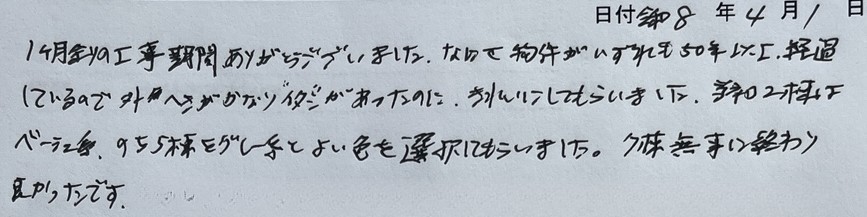 日付 令和 8 年 4 月 1 日
1ヶ月余りの工事期間ありがとうございました。なにせ物件がいずれも50年以上、経過
しているので外カベがかなりイタミがあったのに、きれいにしてもらいました。2棟は
ベージュ系、のち5棟をグレー系とよい色を選択してもらいました。7棟無事に終わり
良かったです。